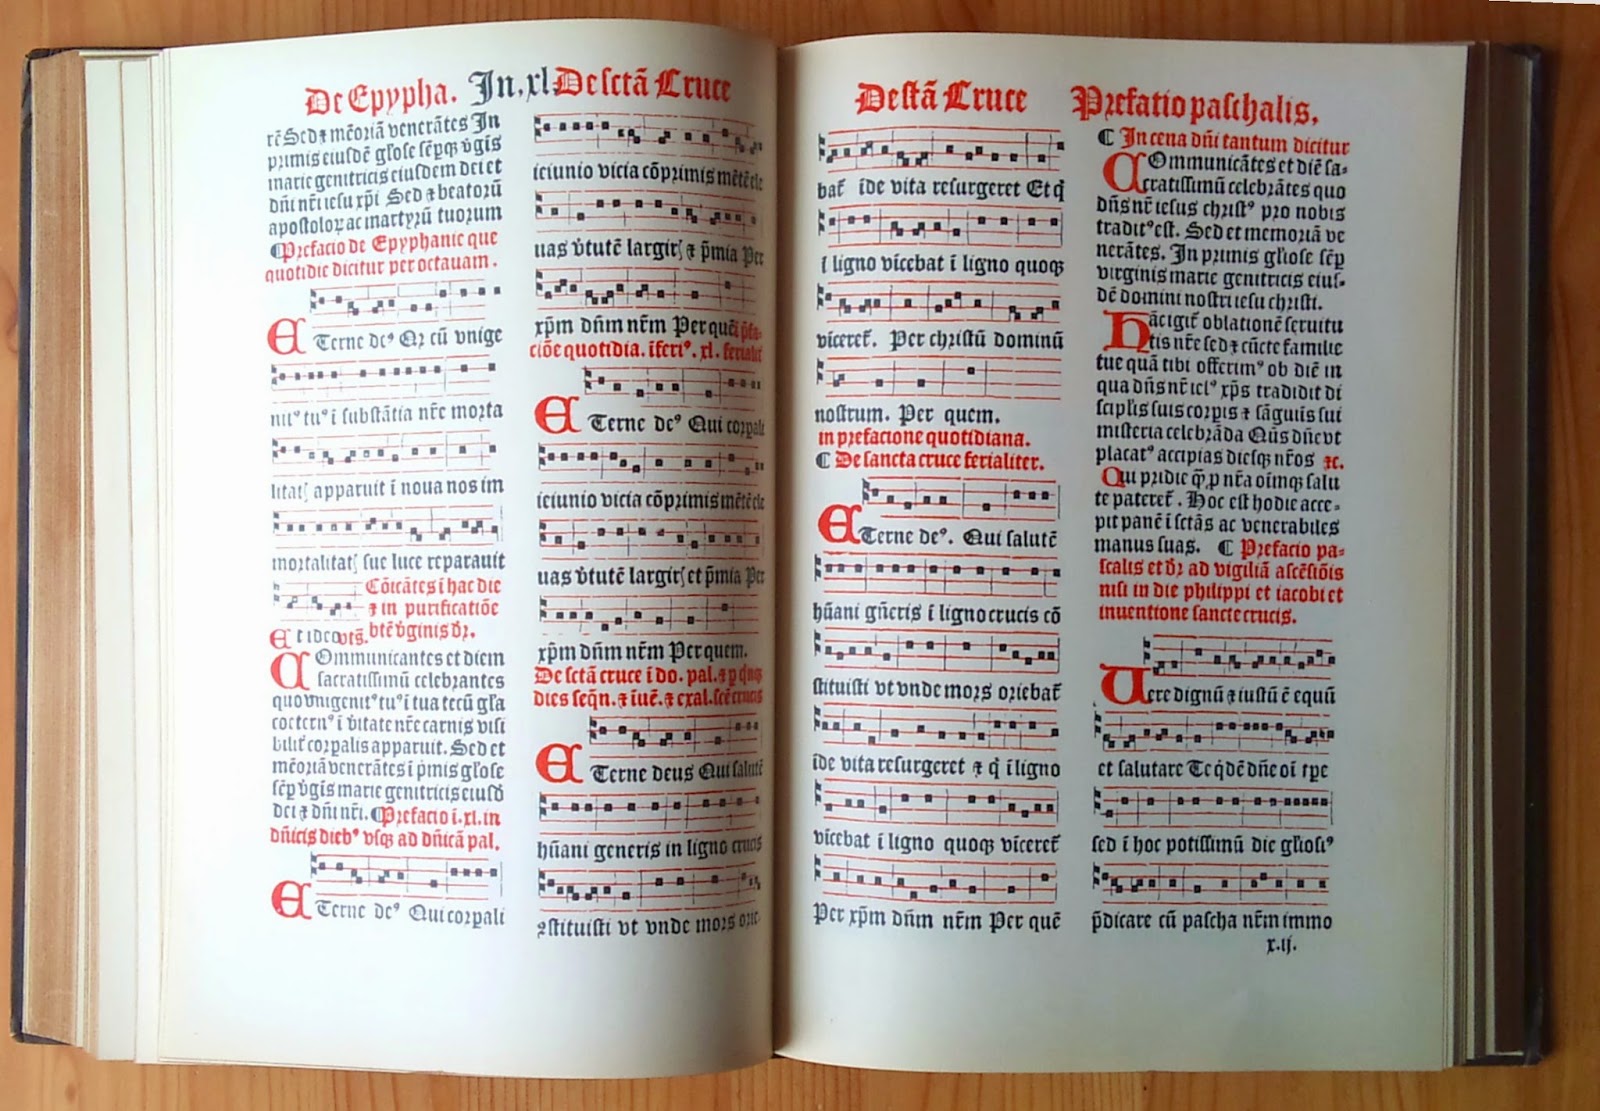 De Epypha. In. xl. De sctã Cruce
rẽ Sed ⁊ mẽoriã venerãtes In
primis eiusdẽ gľose sẽꝑqꝫ v̉gĩs
marie genitricis eiusdem dei et
dñi nr̃i iesu xp̃i Sed ⁊ beatorũ
apostoloꝝ ac martyrũ tuorum
¶Prefacio de Epyphanie que
quotidie dicitur per octauam.
ETerne deꝰ Qꝛ cũ vnige
nitꝰ tuꝰ ĩ substãtia nr̃e morta
litatꝭ apparuit ĩ noua nos im
mortalitatꝭ sue luce reparauit
Cõicãtes ĩ hac die
⁊ in purificatiõe
btẽ v̉ginis dr̃.
Et ideo vts̃.
COmmunicantes et diem
sacratissimũ celebrantes
quo vnigenitꝰ tuꝰ ĩ tua tecũ gľa
coeternꝰ ĩ v̉itate nr̃e carnis visi
bilit̃ corꝑalis apparuit. Sed et
mẽoriã venerãtes ĩ p̃mis gľose
sẽꝑ v̉gĩs marie genitricis eiusdẽ
dei ⁊ dñi nr̃i. ¶Prefacio ĩ. xl. in
dñicis diebꝰ vsqꝫ ad dñicã pal.
ETerne deꝰ Qui corꝑali
iciunio vicia cõprimis mẽtẽ ele
uas v̉tutẽ largirꝭ ⁊ p̃mia Per
xp̃m dñm nr̃m Per quẽ p̃fa-
ciõe quotidia. ĩ feriꝰ. xl. ferialit̃
ETerne deꝰ Qui corꝑali
iciunio vicia cõprimis mẽtẽ ele
uas v̉tutẽ largirꝭ et p̃mia Per
xp̃m dñm nr̃m Per quem.
De sctã cruce ĩ do. pal. ⁊ ꝑ q̃nqꝫ
dies seq̃n. ⁊ ĩuẽ. ⁊ exal. scẽ crucis
ETerne deus Qui salutẽ
hũani generis in ligno crucis
ꝯstituisti vt vnde mors orie-
De stã Cruce Prefatio paschalis,
bat̃ ĩde vita resurgeret Et q̇
ĩ ligno vĩcebat ĩ ligno quoqꝫ
vĩceret̃. Per christũ dominũ
nostrum. Per quem.
in prefacione quotidiana.
¶ De sancta cruce ferialiter.
ETerne deꝰ. Qui salutẽ
hũani gñeris ĩ ligno crucis cõ
stituisti vt vnde mors oriebat̃
ĩde vita resurgeret ⁊ q̇ ĩ ligno
vĩcebat ĩ ligno quoqꝫ vĩceret̃
Per xp̃m dñm nr̃m Per quẽ
¶ In cena dñi tantum dicitur
COmmunicãtes et diẽ sa-
cratissimũ celebrãtes quo
dñs nr̃ iesus christꝰ pro nobis
traditꝰ est. Sed et memoriã ve
nerãtes. In primis gľose sẽꝑ
virginis marie genitricis eius-
dẽ domini nostri iesu christi.
HAc̃ igit̃ oblationẽ seruitu
tis nr̃e sed ⁊ cũcte familie
tue quã tibi offerimꝰ ob diẽ in
qua dñs nr̃ iesꝰ xp̃s tradidit di
scipľis suis corꝑis ⁊ sãguĩs sui
misteria celebrãda Qũs dñe vt
placatꝰ accipias diesqꝫ nr̃os ⁊c.
QUi pridie q̃ꝫ ꝓ nr̃a oĩmqꝫ salu
te pateret̃. Hoc est hodie acce-
pit panẽ ĩ sctãs ac venerabiles
manus suas. ¶ Prefacio pa-
scalis et dr̃ ad vigiliã ascẽsiõis
nisi in die philippi et iacobi et
inuentione sancte crucis.
VEre dignũ ⁊ iustũ ẽ equũ
et salutare Te q̇dẽ dñe oĩ tꝑe
sed ĩ hoc potissimũ die gľiosiꝰ
p̃dicare cũ pascha nr̃m immo
x.ij.